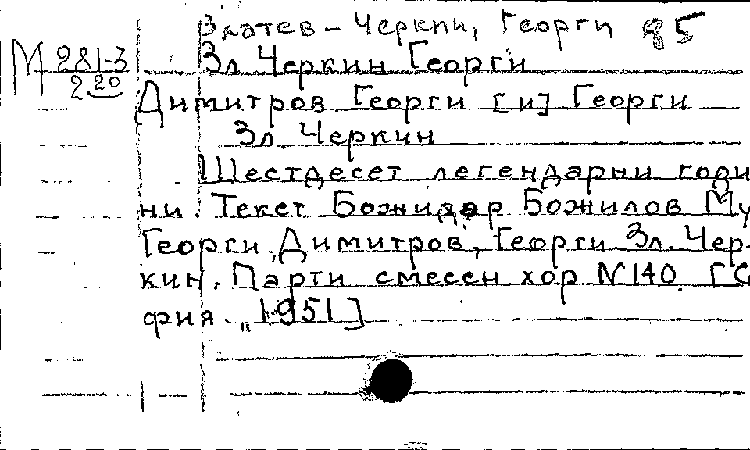 Златев - Черкин, Георги 85
М 281-3 Зл. Черкин Георги
2.20
Димитров Георги [и] Георги
Зл. Черкин
Шестдесет легендарни годи
ни. Текст Божидар Божилов Му
Георги Димитров, Георги Зл. Чер-
кин. Парти смесен хор N 140. [Со
фия. „1951]